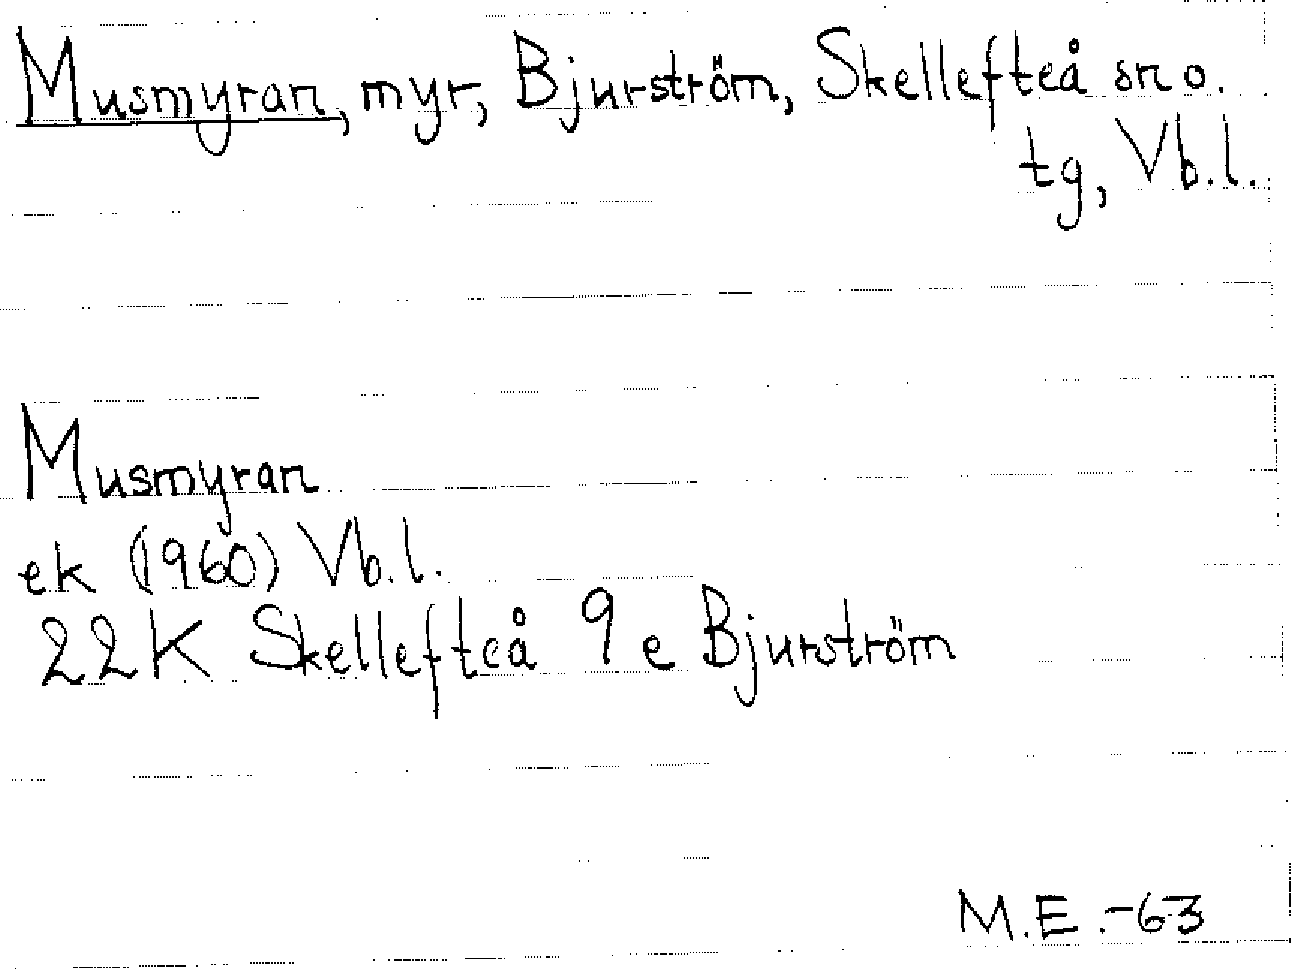 Musmyran, myr, Bjurström, Skellefteå sn o.
tg, Vb.l.
Musmyran
ek (1960) Vb.l.
22K Skellefteå 9e Bjurström
M.E.-63